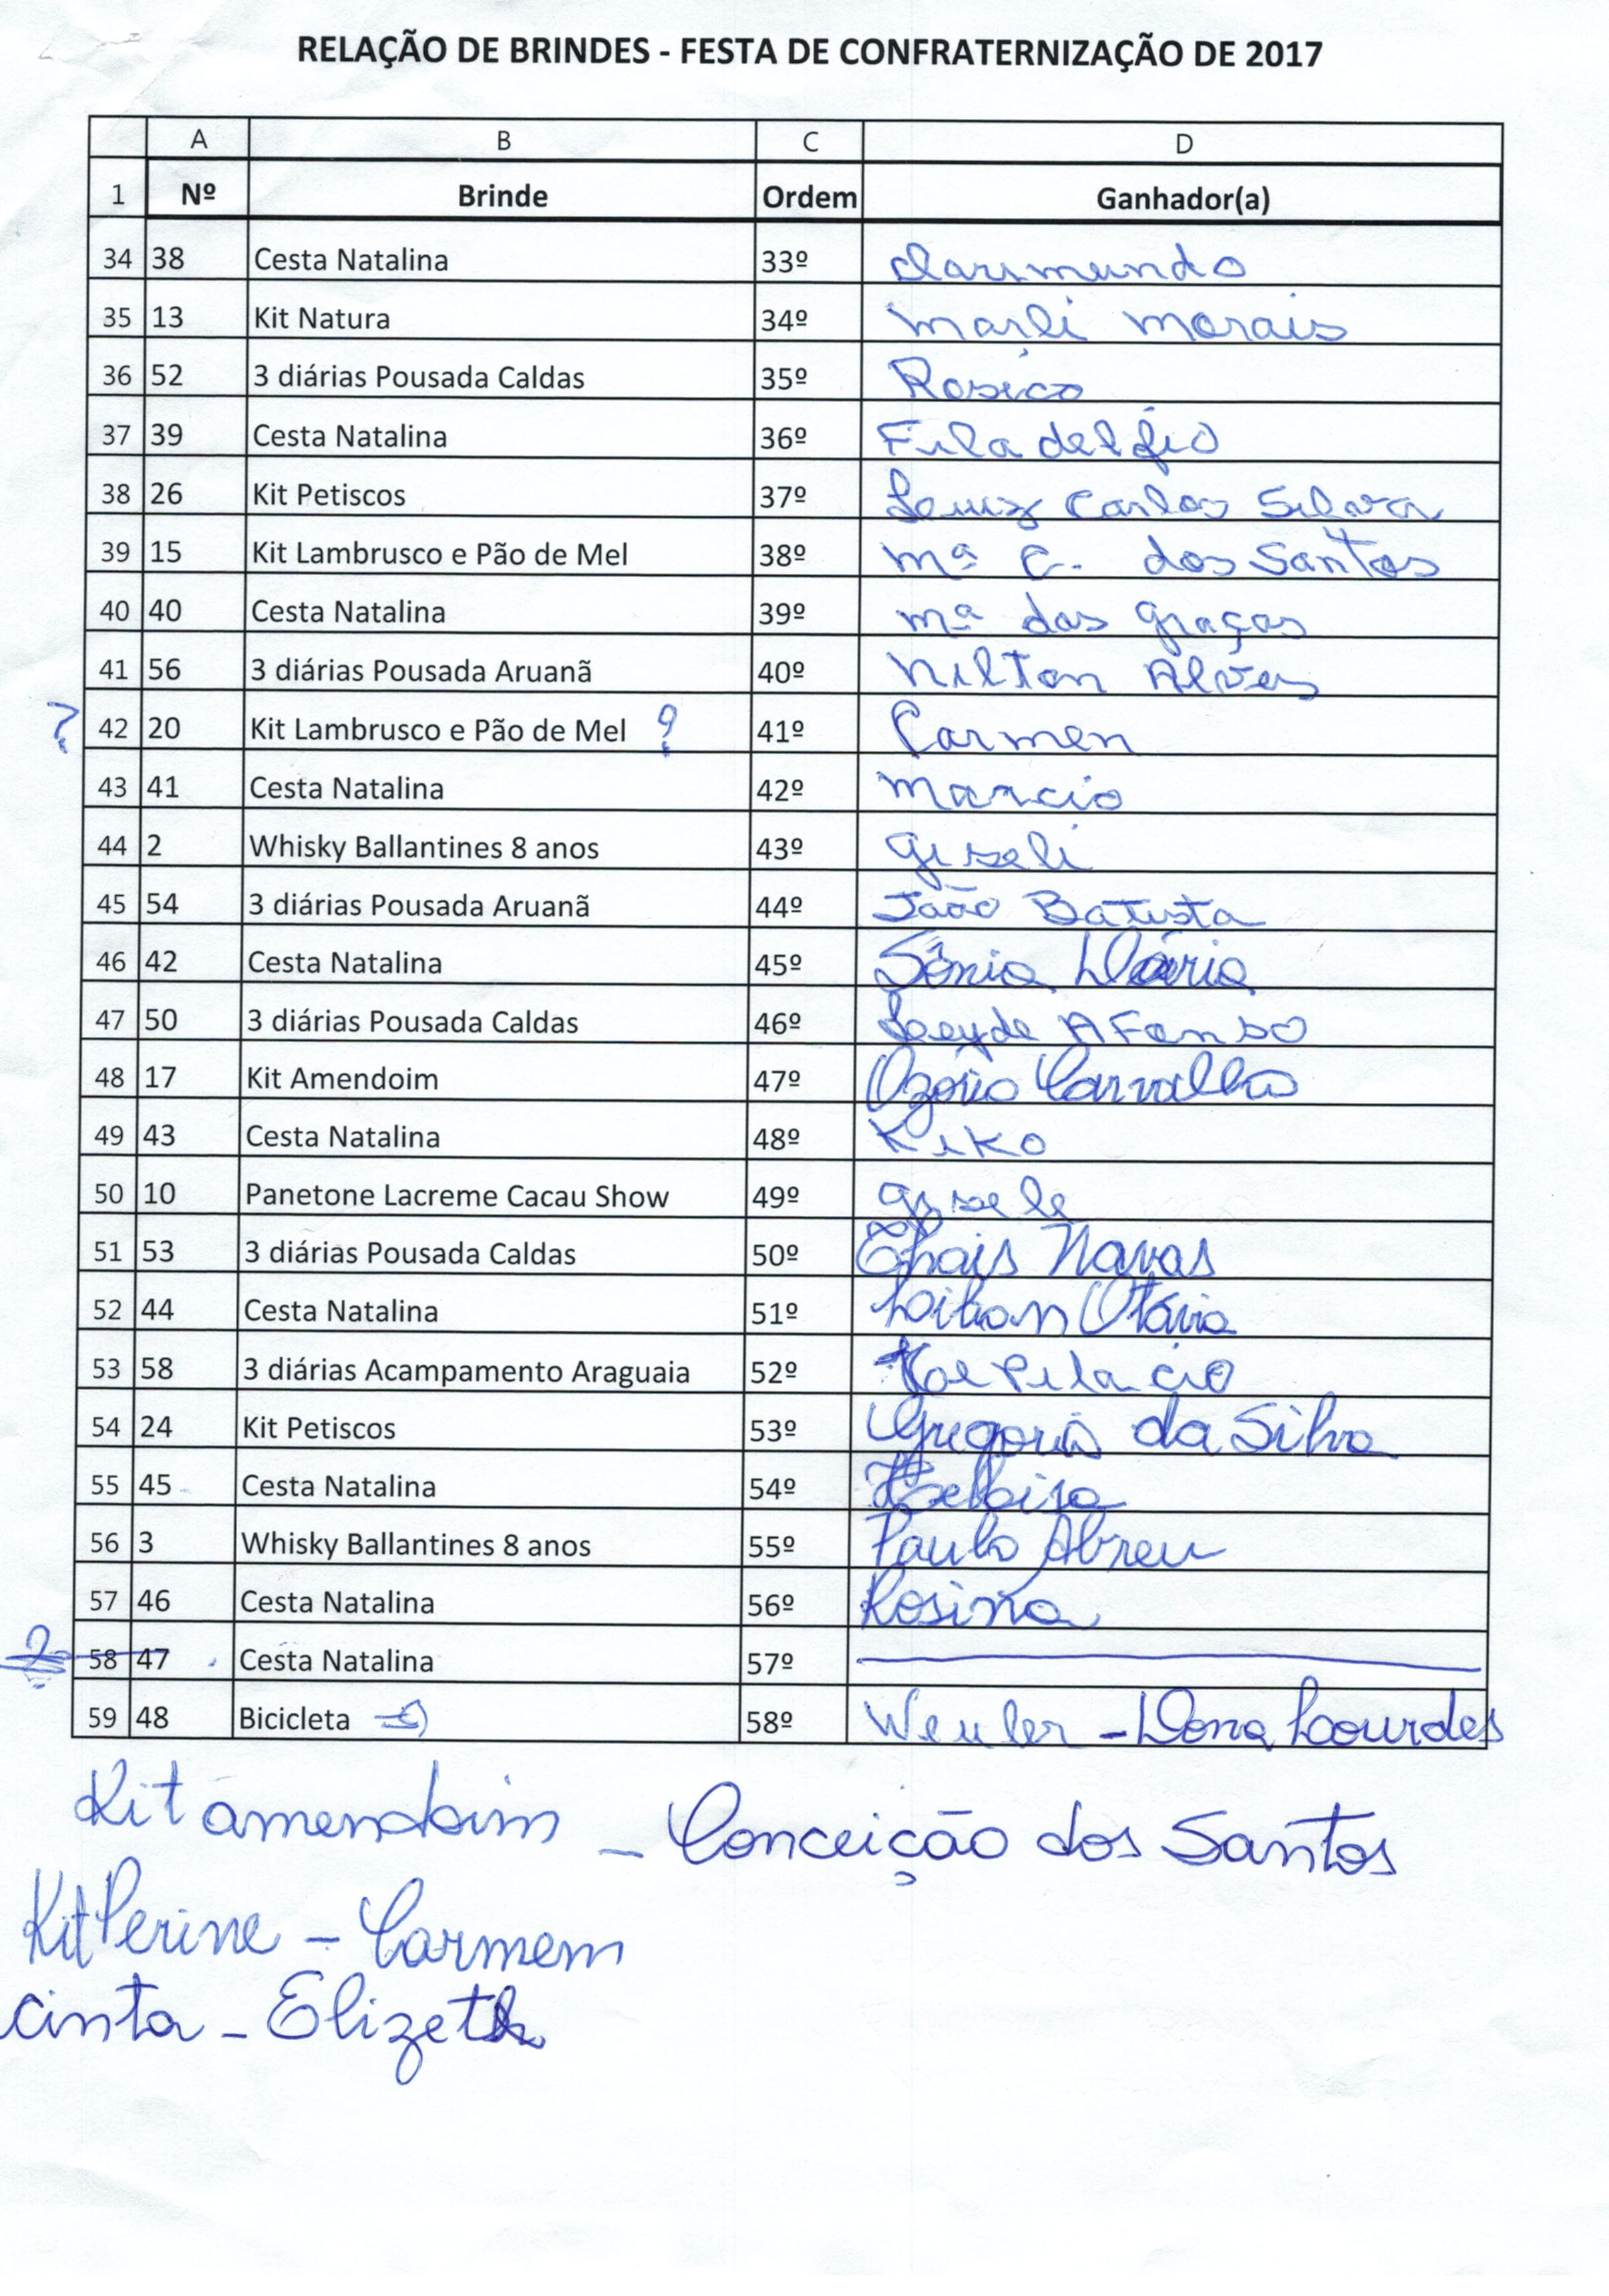 RELAÇÃO DE BRINDES - FESTA DE CONFRATERNIZAÇÃO DE 2017
A B C D
1 Nº Brinde Ordem Ganhador(a)
34 38 Cesta Natalina 33º Clarimundo
35 13 Kit Natura 34º Marli Morais
36 52 3 diárias Pousada Caldas 35º
37 39 Cesta Natalina 36º Filadelfio
38 26 Kit Petiscos 37º Luiz Carlos Silva
39 15 Kit Lambrusco e Pão de Mel 38º Mª C. dos Santos
40 40 Cesta Natalina 39º Mª das Graças
41 56 3 diárias Pousada Aruanã 40º Nilton Alves
? 42 20 Kit Lambrusco e Pão de Mel ? 41º Carmen
43 41 Cesta Natalina 42º Marcio
44 2 Whisky Ballantines 8 anos 43º Giseli
45 54 3 diárias Pousada Aruanã 44º João Batista
46 42 Cesta Natalina 45º Sônia Maria
47 50 3 diárias Pousada Caldas 46º Leyde Afonso
48 17 Kit Amendoim 47º Ozório Carvalho
49 43 Cesta Natalina 48º Kiko
50 10 Panetone Lacreme Cacau Show 49º Gisele
51 53 3 diárias Pousada Caldas 50º Thais Navas
52 44 Cesta Natalina 51º Otávio
53 58 3 diárias Acampamento Araguaia 52º
54 24 Kit Petiscos 53º Gregorio da Silva
55 45 Cesta Natalina 54º Heloisa
56 3 Whisky Ballantines 8 anos 55º Paulo Abreu
57 46 Cesta Natalina 56º Rosina
58 47 Cesta Natalina 57º
59 48 Bicicleta 58º Weuler - Dona Lourdes
Kit amendoim - Conceição dos Santos
Kit Perine - Carmem
cinta - Elizeth